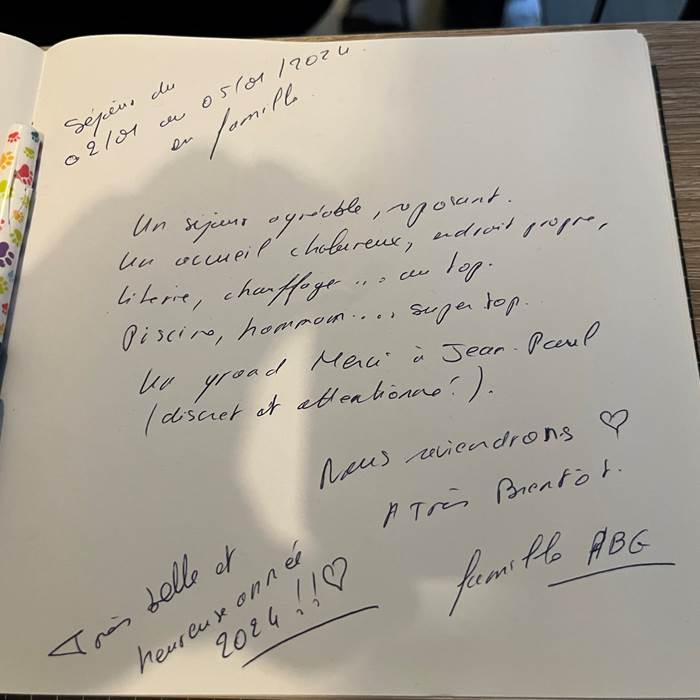 Séjour du
02/01 au 05/01/2024
en famille.
Un séjour agréable, reposant.
Un accueil chaleureux, endroit propre,
literie, chauffage ... au top.
Piscine, hammam .... super top.
Un grand Merci à Jean-Paul
(discret et attentionné!).
Nous reviendrons ♡
A Très Bientôt.
famille ABG
Très belle et
heureuse année
2024 !! ♡